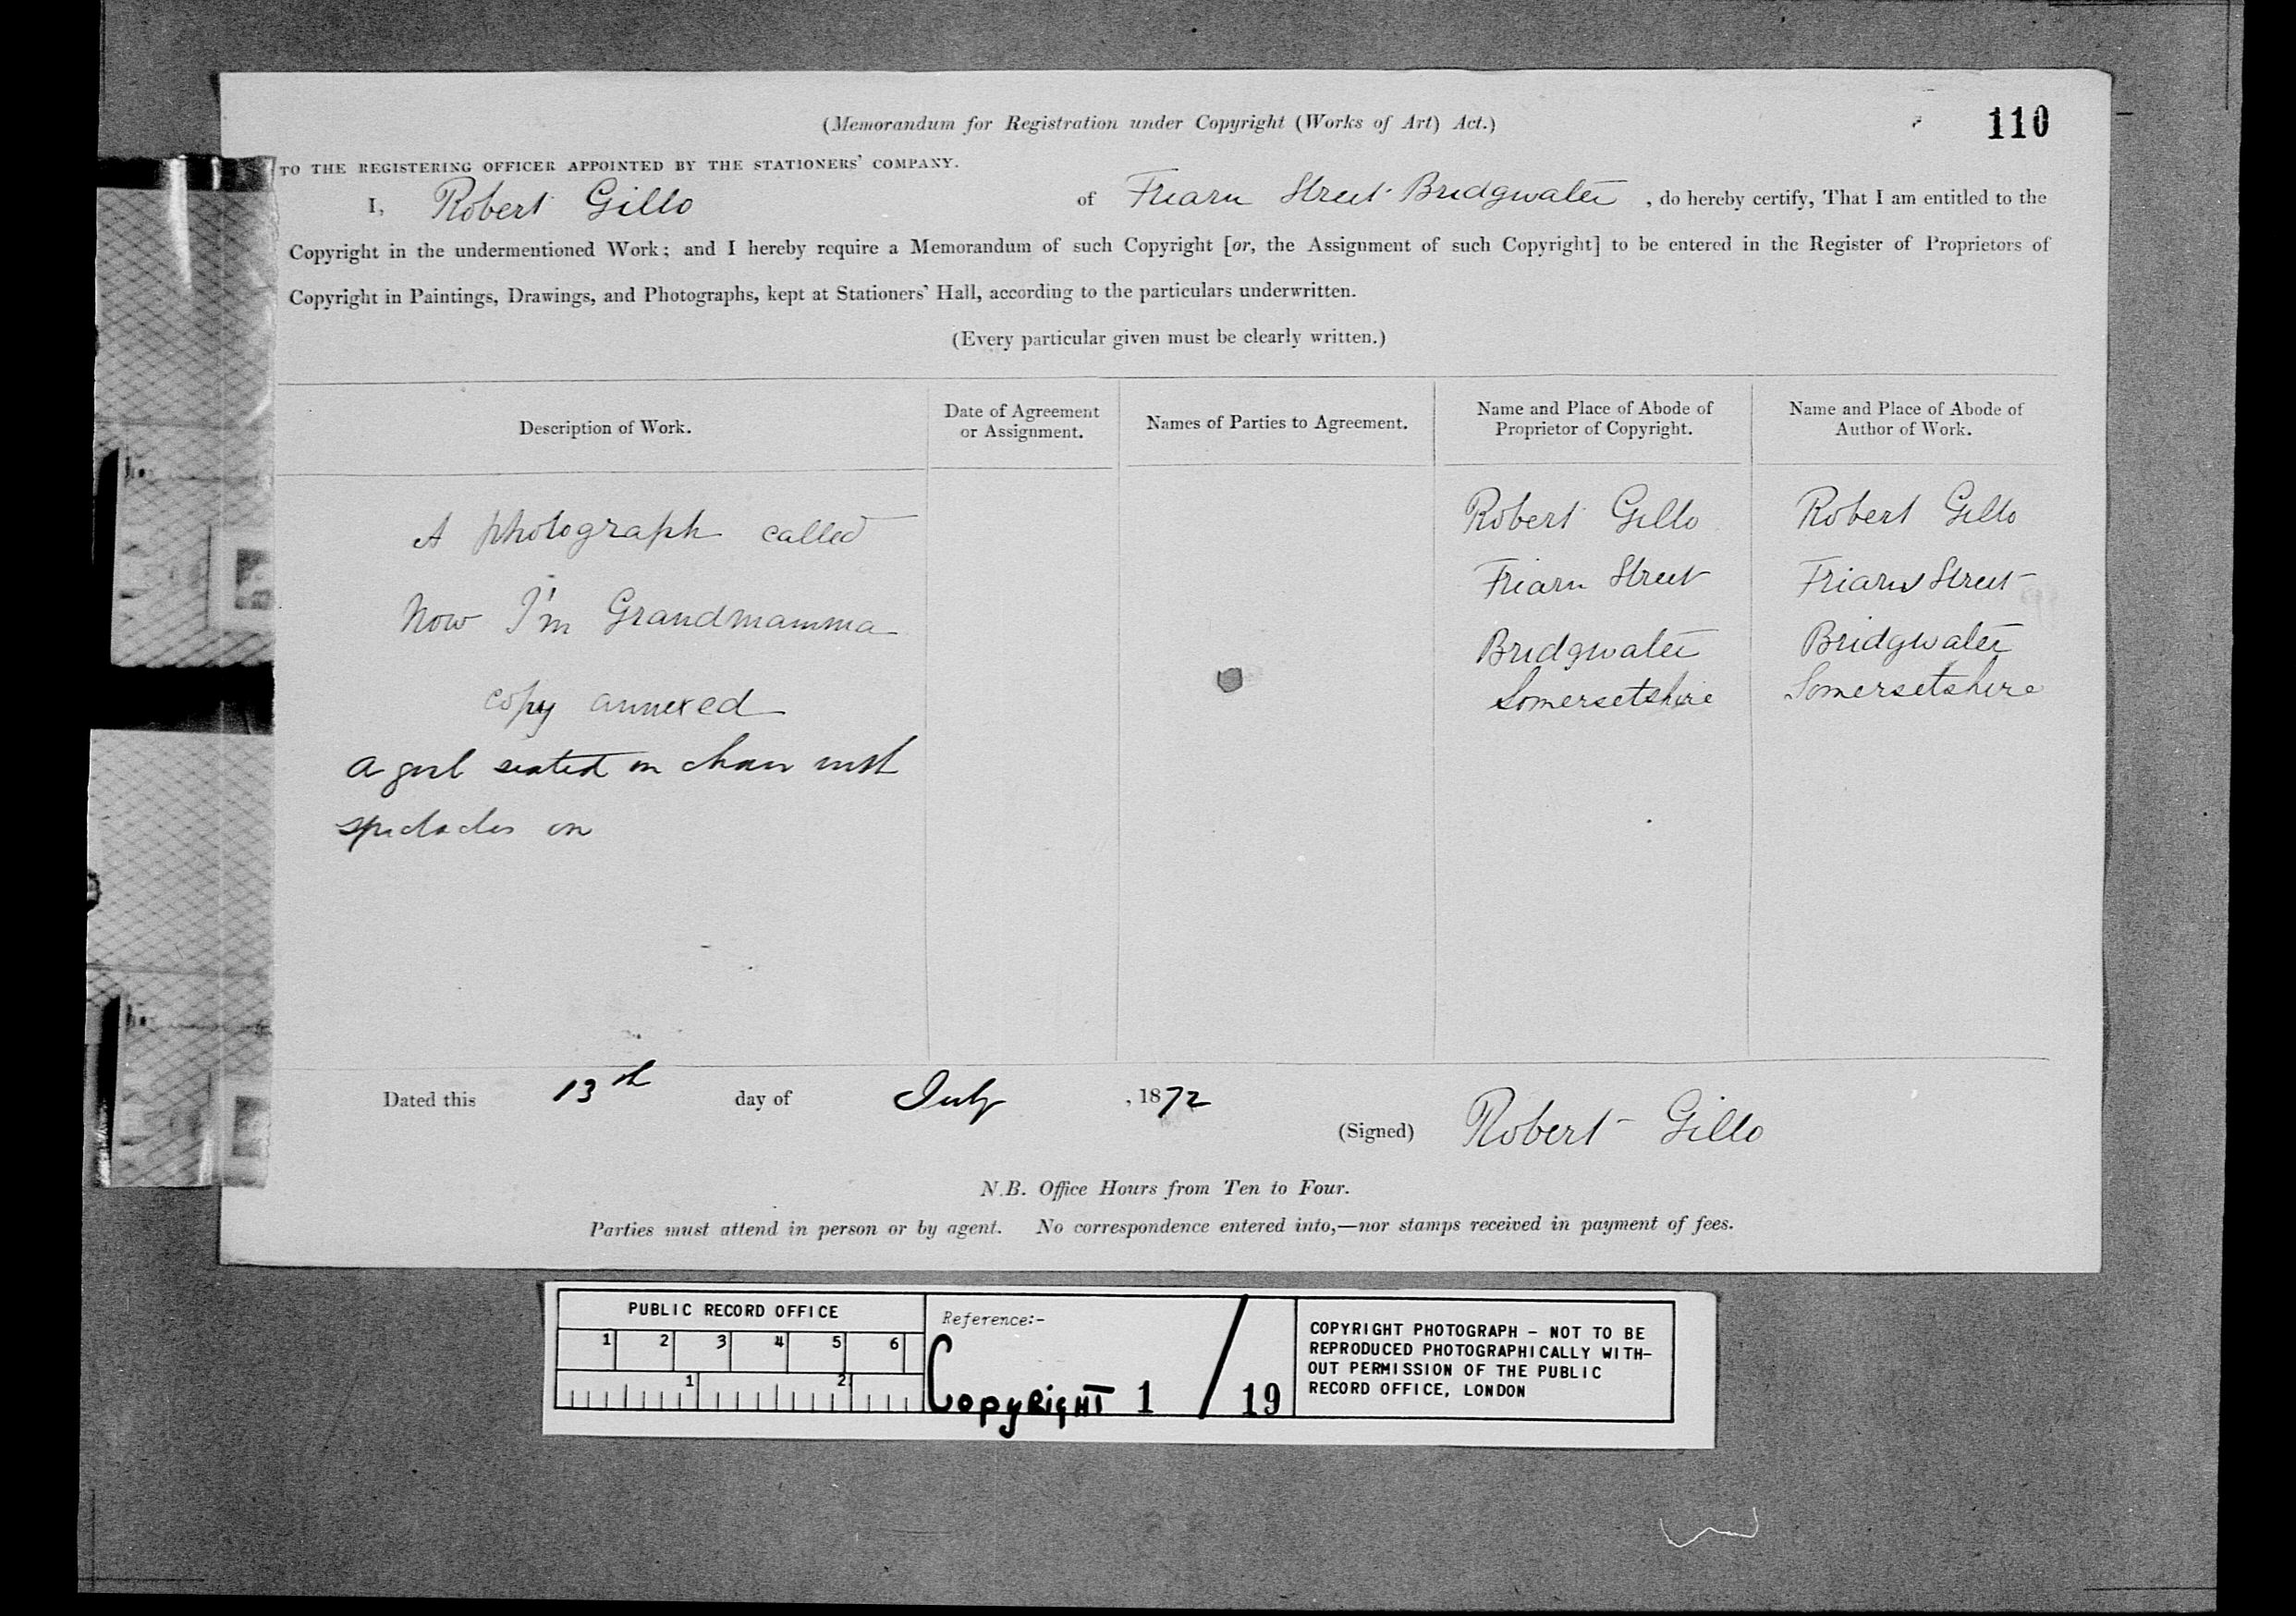 110
(Memorandum for Registration under Copyright (Works of Art) Act.)
TO THE REGISTERING OFFICER APPOINTED BY THE STATIONERS' COMPANY.
I, Robert Gillo of Friarn Street Bridgwater, do hereby certify, That I am entitled to the
Copyright in the undermentioned Work; and I hereby require a Memorandum of such Copyright [or, the Assignment of such Copyright] to be entered in the Register of Proprietors of
Copyright in Paintings, Drawings, and Photographs, kept at Stationers' Hall, according to the particulars underwritten.
(Every particular given must be clearly written.)
Description of Work.
Date of Agreement
or Assignment.
Names of Parties to Agreement.
Name and Place of Abode of
Proprietor of Copyright.
Name and Place of Abode of
Author of Work.
A photograph called
Now I'm Grandmamma
copy annexed
a girl seated on chair with
spectacles on
Robert Gillo
Friarn Street
Bridgwater
Somersetshire
Robert Gillo
Friarn Street
Bridgwater
Somersetshire
Dated this 13th day of July, 1872
(Signed) Robert Gillo
N.B. Office Hours from Ten to Four.
Parties must attend in person or by agent. No correspondence entered into,—nor stamps received in payment of fees.
PUBLIC RECORD OFFICE
1 2 3 4 5 6
1 2
Reference:-
Copyright 1 / 19
COPYRIGHT PHOTOGRAPH - NOT TO BE
REPRODUCED PHOTOGRAPHICALLY WITH-
OUT PERMISSION OF THE PUBLIC
RECORD OFFICE, LONDON